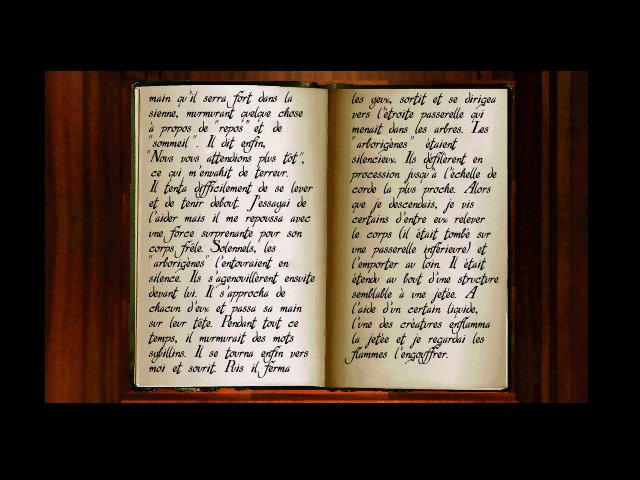 main qu'il serra fort dans la
sienne, murmurant quelque chose
à propos de "repos" et de
"sommeil". Il dit enfin,
"Nous vous attendions plus tôt",
ce qui m'envahit de terreur.
Il tenta difficilement de se lever
et de tenir debout. J'essayai de
l'aider mais il me repoussa avec
une force surprenante pour son
corps frêle. Solennels, les
"arborigènes" l'entouraient en
silence. Ils s'agenouillèrent ensuite
devant lui. Il s'approcha de
chacun d'eux et passa sa main
sur leur tête. Pendant tout ce
temps, il murmurait des mots
sybillins. Il se tourna enfin vers
moi et sourit. Puis il ferma
les yeux, sortit et se dirigea
vers l'étroite passerelle qui
menait dans les arbres. Les
"arborigènes" étaient
silencieux. Ils défilèrent en
procession jusqu'à l'échelle de
corde la plus proche. Alors
que je descendais, je vis
certains d'entre eux relever
le corps (il était tombé sur
une passerelle inférieure) et
l'emporter au loin. Il était
étendu au bout d'une structure
semblable à une jetée. A
l'aide d'un certain liquide,
l'une des créatures enflamma
la jetée et je regardai les
flammes l'engouffrer.